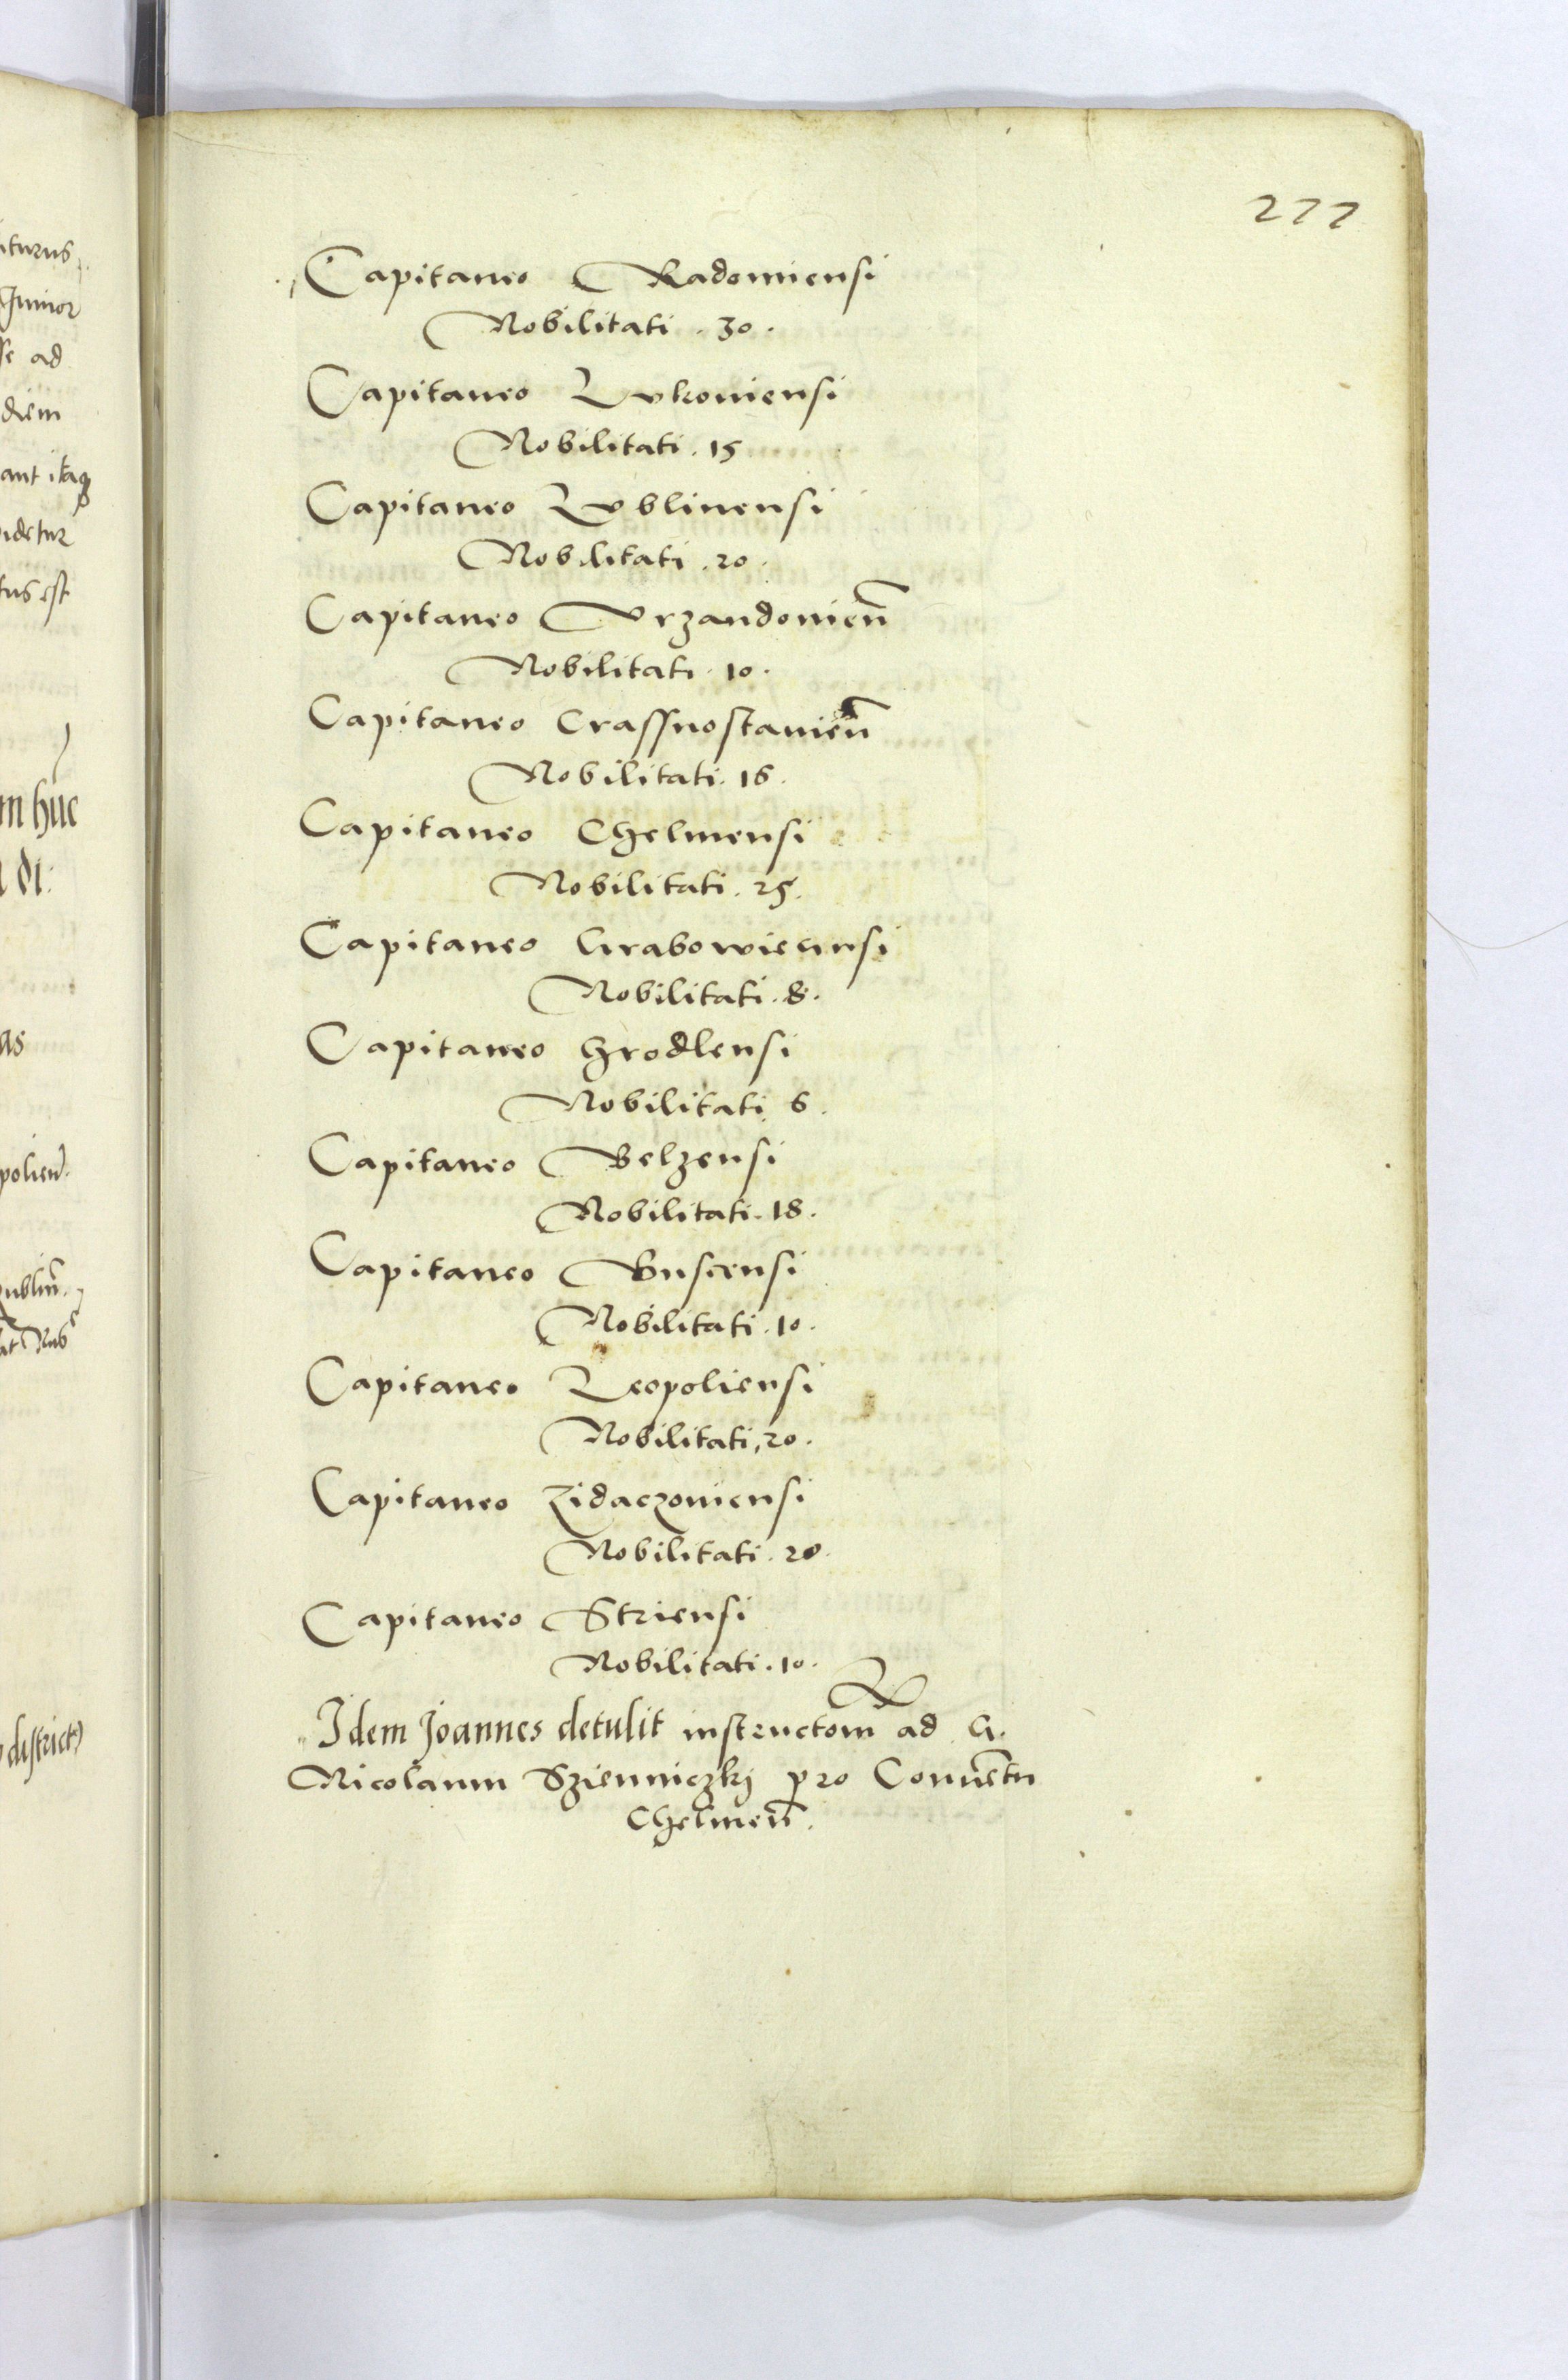 277
Capitaneo Radomiensi
Nobilitati . 30 .
Capitaneo Lukoviensi
Nobilitati . 15
Capitaneo Lublinensi
Nobilitati . 20 .
Capitaneo Vrzandovien̄
Nobilitati . 10 .
Capitaneo Crassnostavien̄
Nobilitati . 16 .
Capitaneo Chelmensi
Nobilitati . 25 .
Capitaneo Grabowiecensi
Nobilitati . 8 .
Capitaneo Hrodlensi
Nobilitati 6 .
Capitaneo Belzensi
Nobilitati . 18 .
Capitaneo Buscensi
Nobilitati . 10 .
Capitaneo Leopoliensi
Nobilitati , 20 .
Capitaneo Zidaczoviensi
Nobilitati . 20 .
Capitaneo Striensi
Nobilitati . 10 .
Idem Joannes detulit instructom̄ ad G.
Nicolaum Szienniczkj pro Conuētu
Chelmen̄ .
iturus
Junior
se ad
diem
ant itaq
videtur
tus est
m huc
di:
as
polien̄ .
Lublin̄ .
district